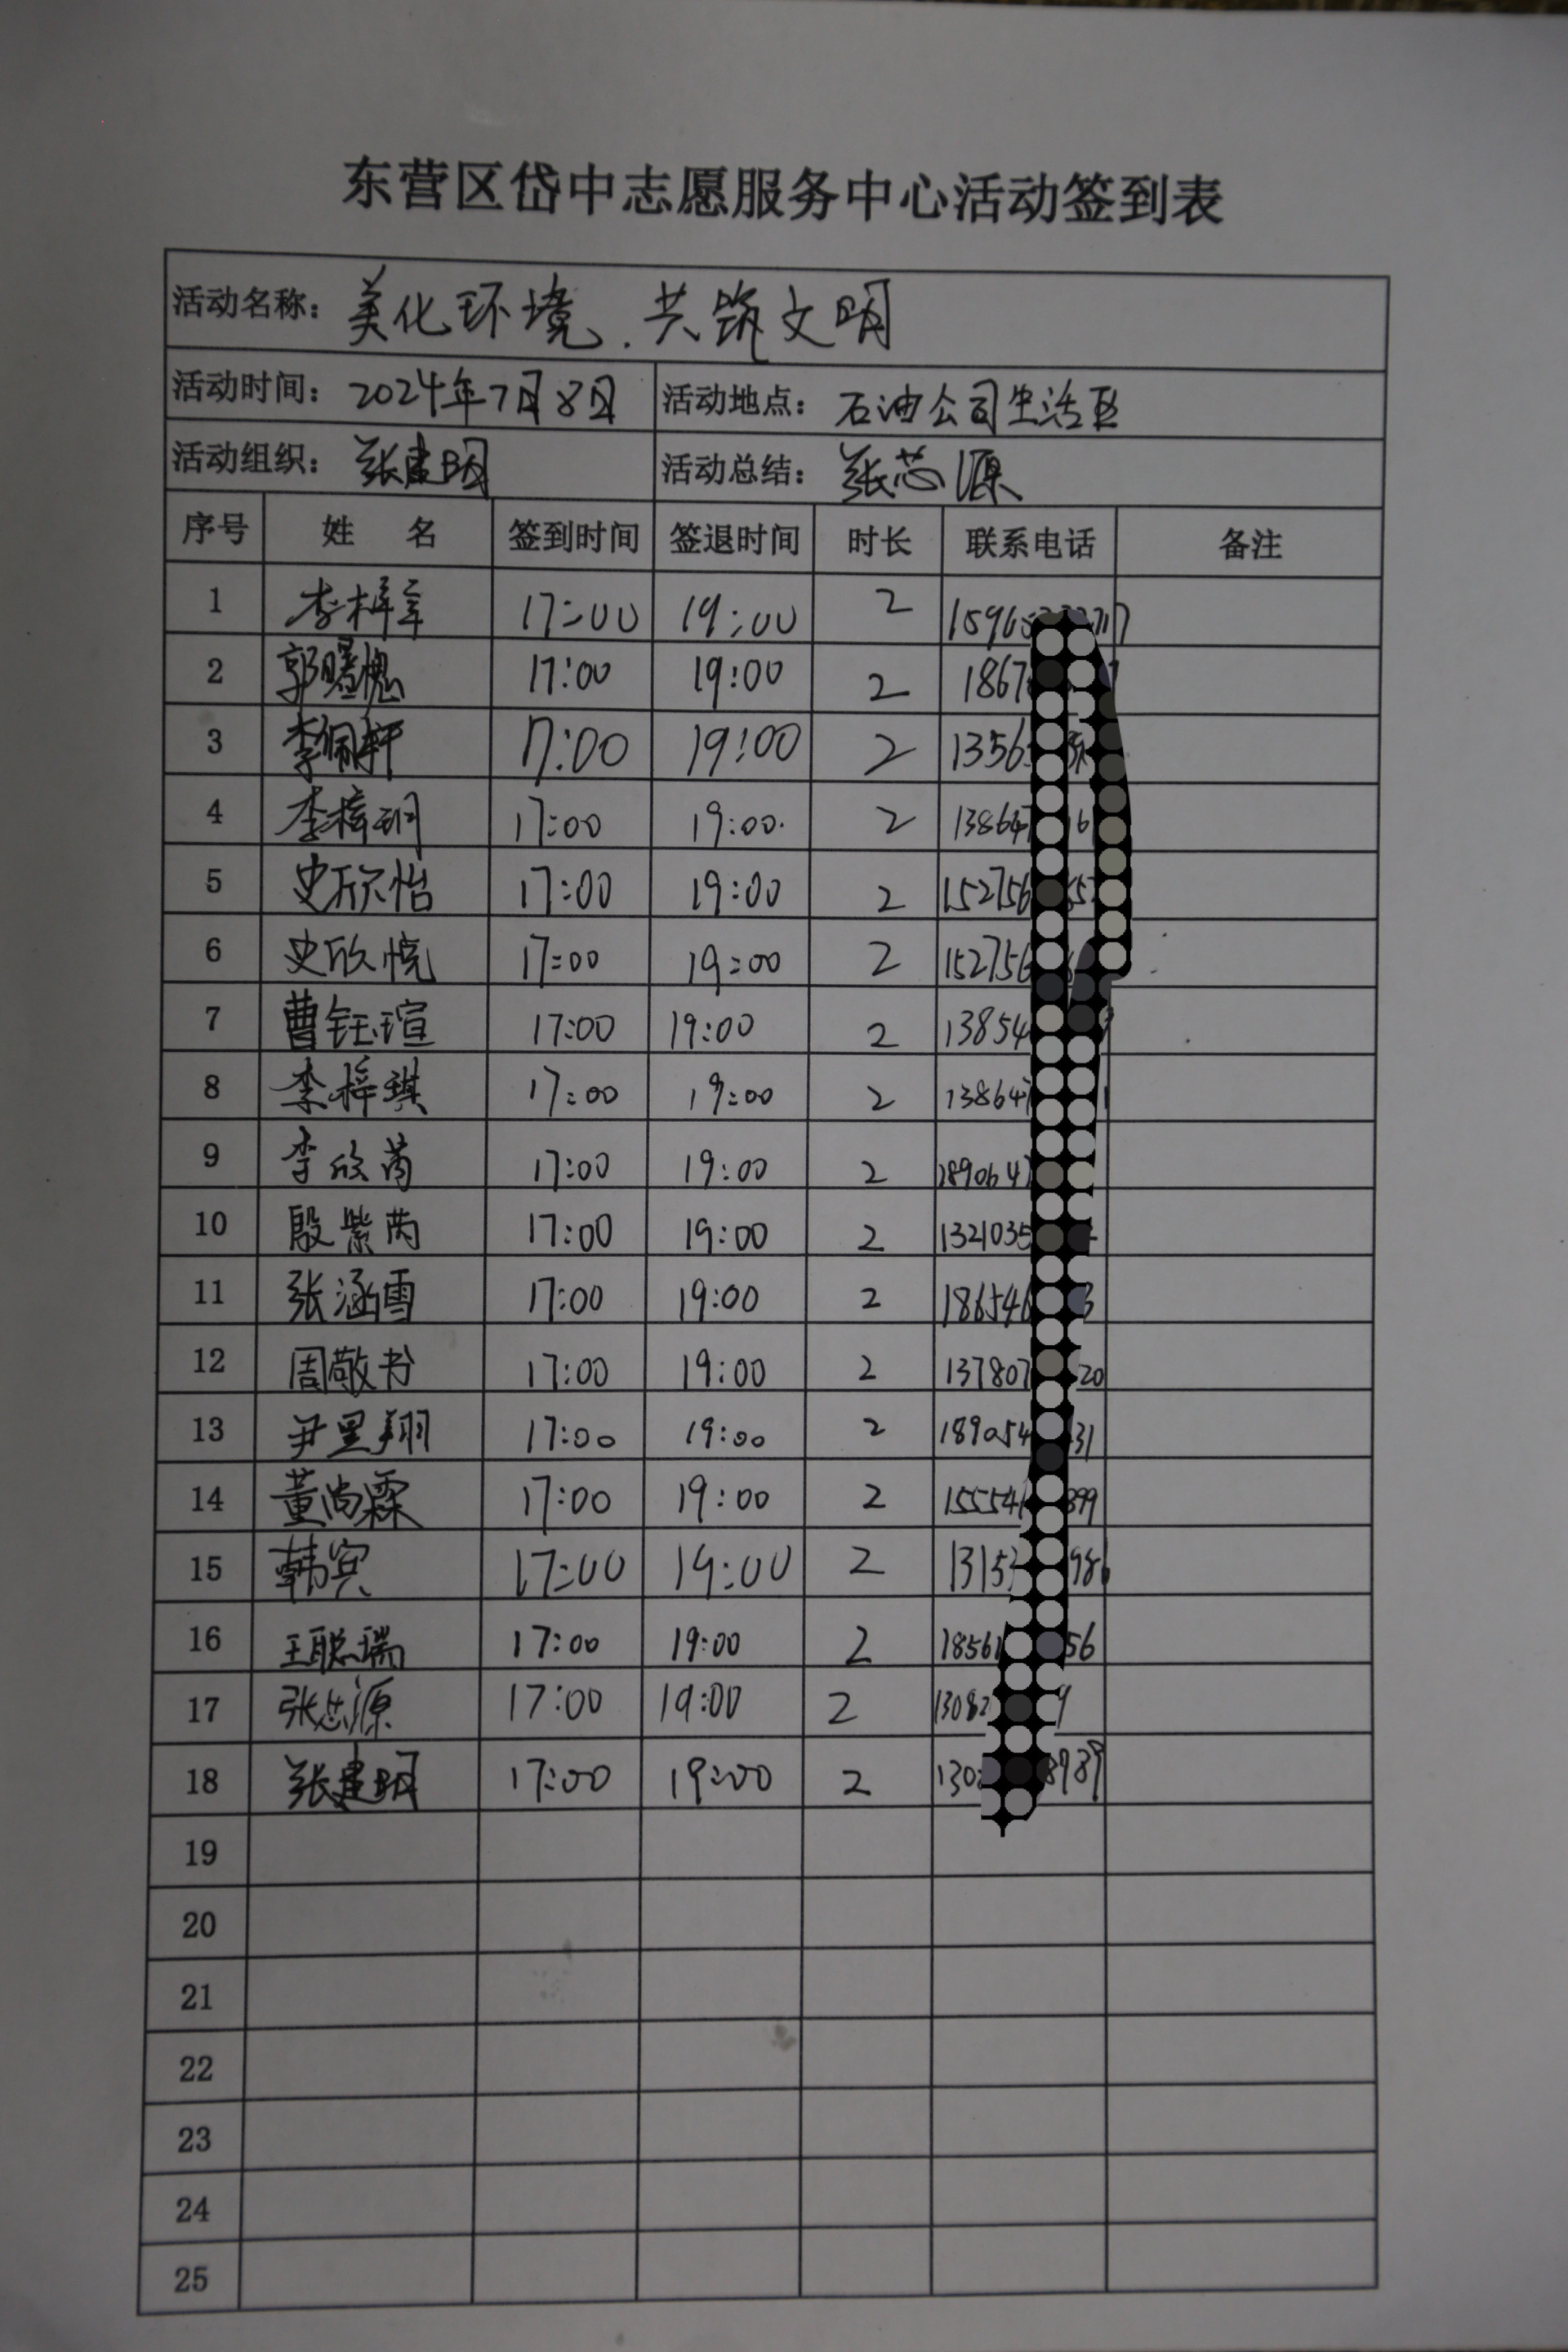 东营区岱中志愿服务中心活动签到表
活动名称: 美化环境.共筑文明
活动时间: 2024年7月8日 活动地点: 石油公司生活区
活动组织: 张建明 活动总结: 张芯源
序号 姓 名 签到时间 签退时间 时长 联系电话 备注
1 李梓 17:00 19:00 2
2 郭曙 17:00 19:00 2 1867
3 李佩轩 17:00 19:00 2 1356
4 李梓玥 17:00 19:00. 2 13864
5 史欣怡 17:00 19:00 2 152756
6 史欣悦 17:00 19:00 2 152756
7 曹钰瑄 17:00 19:00 2 13854
8 李梓琪 17:00 19:00 2 138647
9 李欣芮 17:00 19:00 2 1890647
10 殷紫芮 17:00 19:00 2 1321035
11 张涵雪 17:00 19:00 2 186546 3
12 周敬书 17:00 19:00 2 137807 20
13 尹昱翔 17:00 19:00 2 189054 31
14 董尚霖 17:00 19:00 2 155541 399
15 韩宾 17:00 19:00 2 1315 986
16 王聪瑞 17:00 19:00 2 18561 56
17 张芯源 17:00 19:00 2 13082 9
18 张建明 17:00 19:00 2 130 8989
19
20
21
22
23
24
25